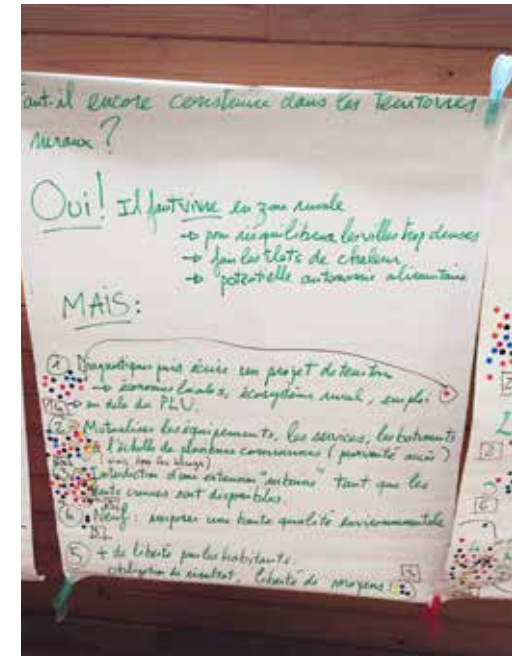 Faut-il encore construire dans les territoires
ruraux ?
Oui! Il faut vivre en zone rurale
→ pour rééquilibrer les villes trop denses
→ fuir les îlots de chaleur
→ potentielle autonomie alimentaire
MAIS:
① Diagnostiquer puis écrire un projet de territoire
→ économies locales, écosystème rural, emploi
→ au delà du PLU.
② Mutualiser les équipements, les services, les bâtiments
à l'échelle de plusieurs communes (proximité aussi)
d'une extension "urbaine" tant que les
sont disponibles
Neuf: imposer une haute qualité environnementale
5 + de liberté pour les habitants.
obligation de résultat, liberté de moyens